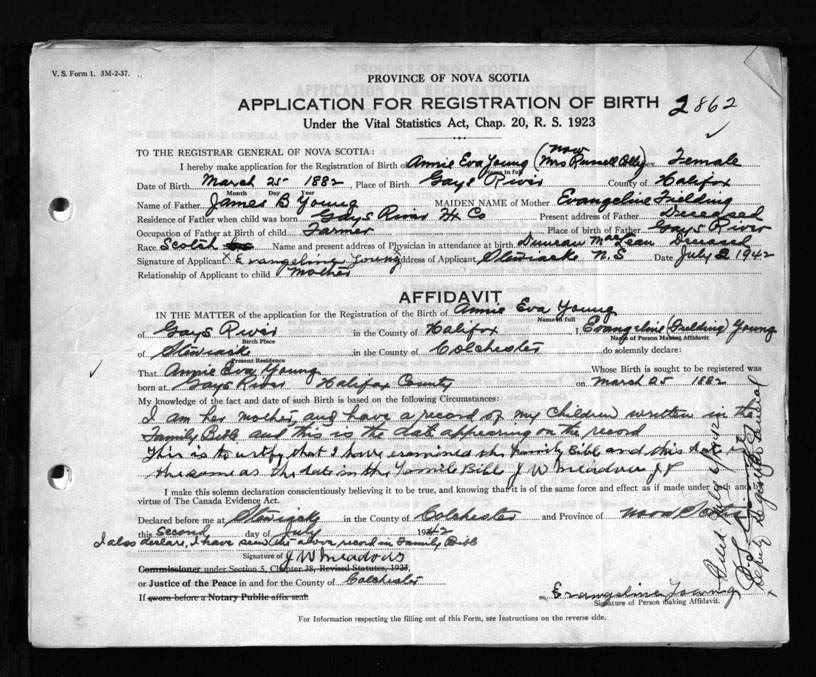 V. S. Form 1. 3M-2-37.
PROVINCE OF NOVA SCOTIA
APPLICATION FOR REGISTRATION OF BIRTH 2862
Under the Vital Statistics Act, Chap. 20, R. S. 1923
TO THE REGISTRAR GENERAL OF NOVA SCOTIA:
I hereby make application for the Registration of Birth of Annie Eva Young (now Mrs Russell) sex Female
Name in full
Date of Birth March 25 1882, Place of Birth Gays River County of Halifax
Month Day Year
Name of Father James B Young MAIDEN NAME of Mother Evangeline Fielding
Residence of Father when child was born Gays River Hx Co Present address of Father Deceased
Occupation of Father at Birth of child Farmer Place of birth of Father Gays River
Race Scotch Name and present address of Physician in attendance at birth Duncan MacLean Deceased
Signature of Applicant X Evangeline Young Address of Applicant Stewiacke N.S Date July 2 1942
Relationship of Applicant to child Mother
AFFIDAVIT
IN THE MATTER of the application for the Registration of Birth of Annie Eva Young
Name in full
of Gays River in the County of Halifax I, Evangeline (Fielding) Young
Birth Place Name of Person Making Affidavit
of Stewiacke in the County of Colchester do solemnly declare:
Present Residence
That Annie Eva Young Whose Birth is sought to be registered was
born at Gays River Halifax County on March 25 1882
My knowledge of the fact and date of such Birth is based on the following Circumstances:
I am her mother, and have a record of my children written in the
Family Bible and this is the date appearing on the record
This is to certify that I have examined the Family Bible and this date is
the same as the date in the Famile Bible J W Meadows J P
I make this solemn declaration conscientiously believing it to be true, and knowing that it is of the same force and effect as if made under oath and
virtue of The Canada Evidence Act.
Declared before me at Stewiacke in the County of Colchester and Province of Nova Scotia
this Second day of July 1942
I also declare, I have seen the above record in Family Bible
Signature of J W Meadows
Commissioner under Section 5, Chapter 38, Revised Statutes, 1923,
or Justice of the Peace in and for the County of Colchester
If sworn before a Notary Public affix seal
Evangeline Young
Signature of Person making Affidavit.
For Information respecting the filling out of this Form, see Instructions on the reverse side.
Deputy Registrar General